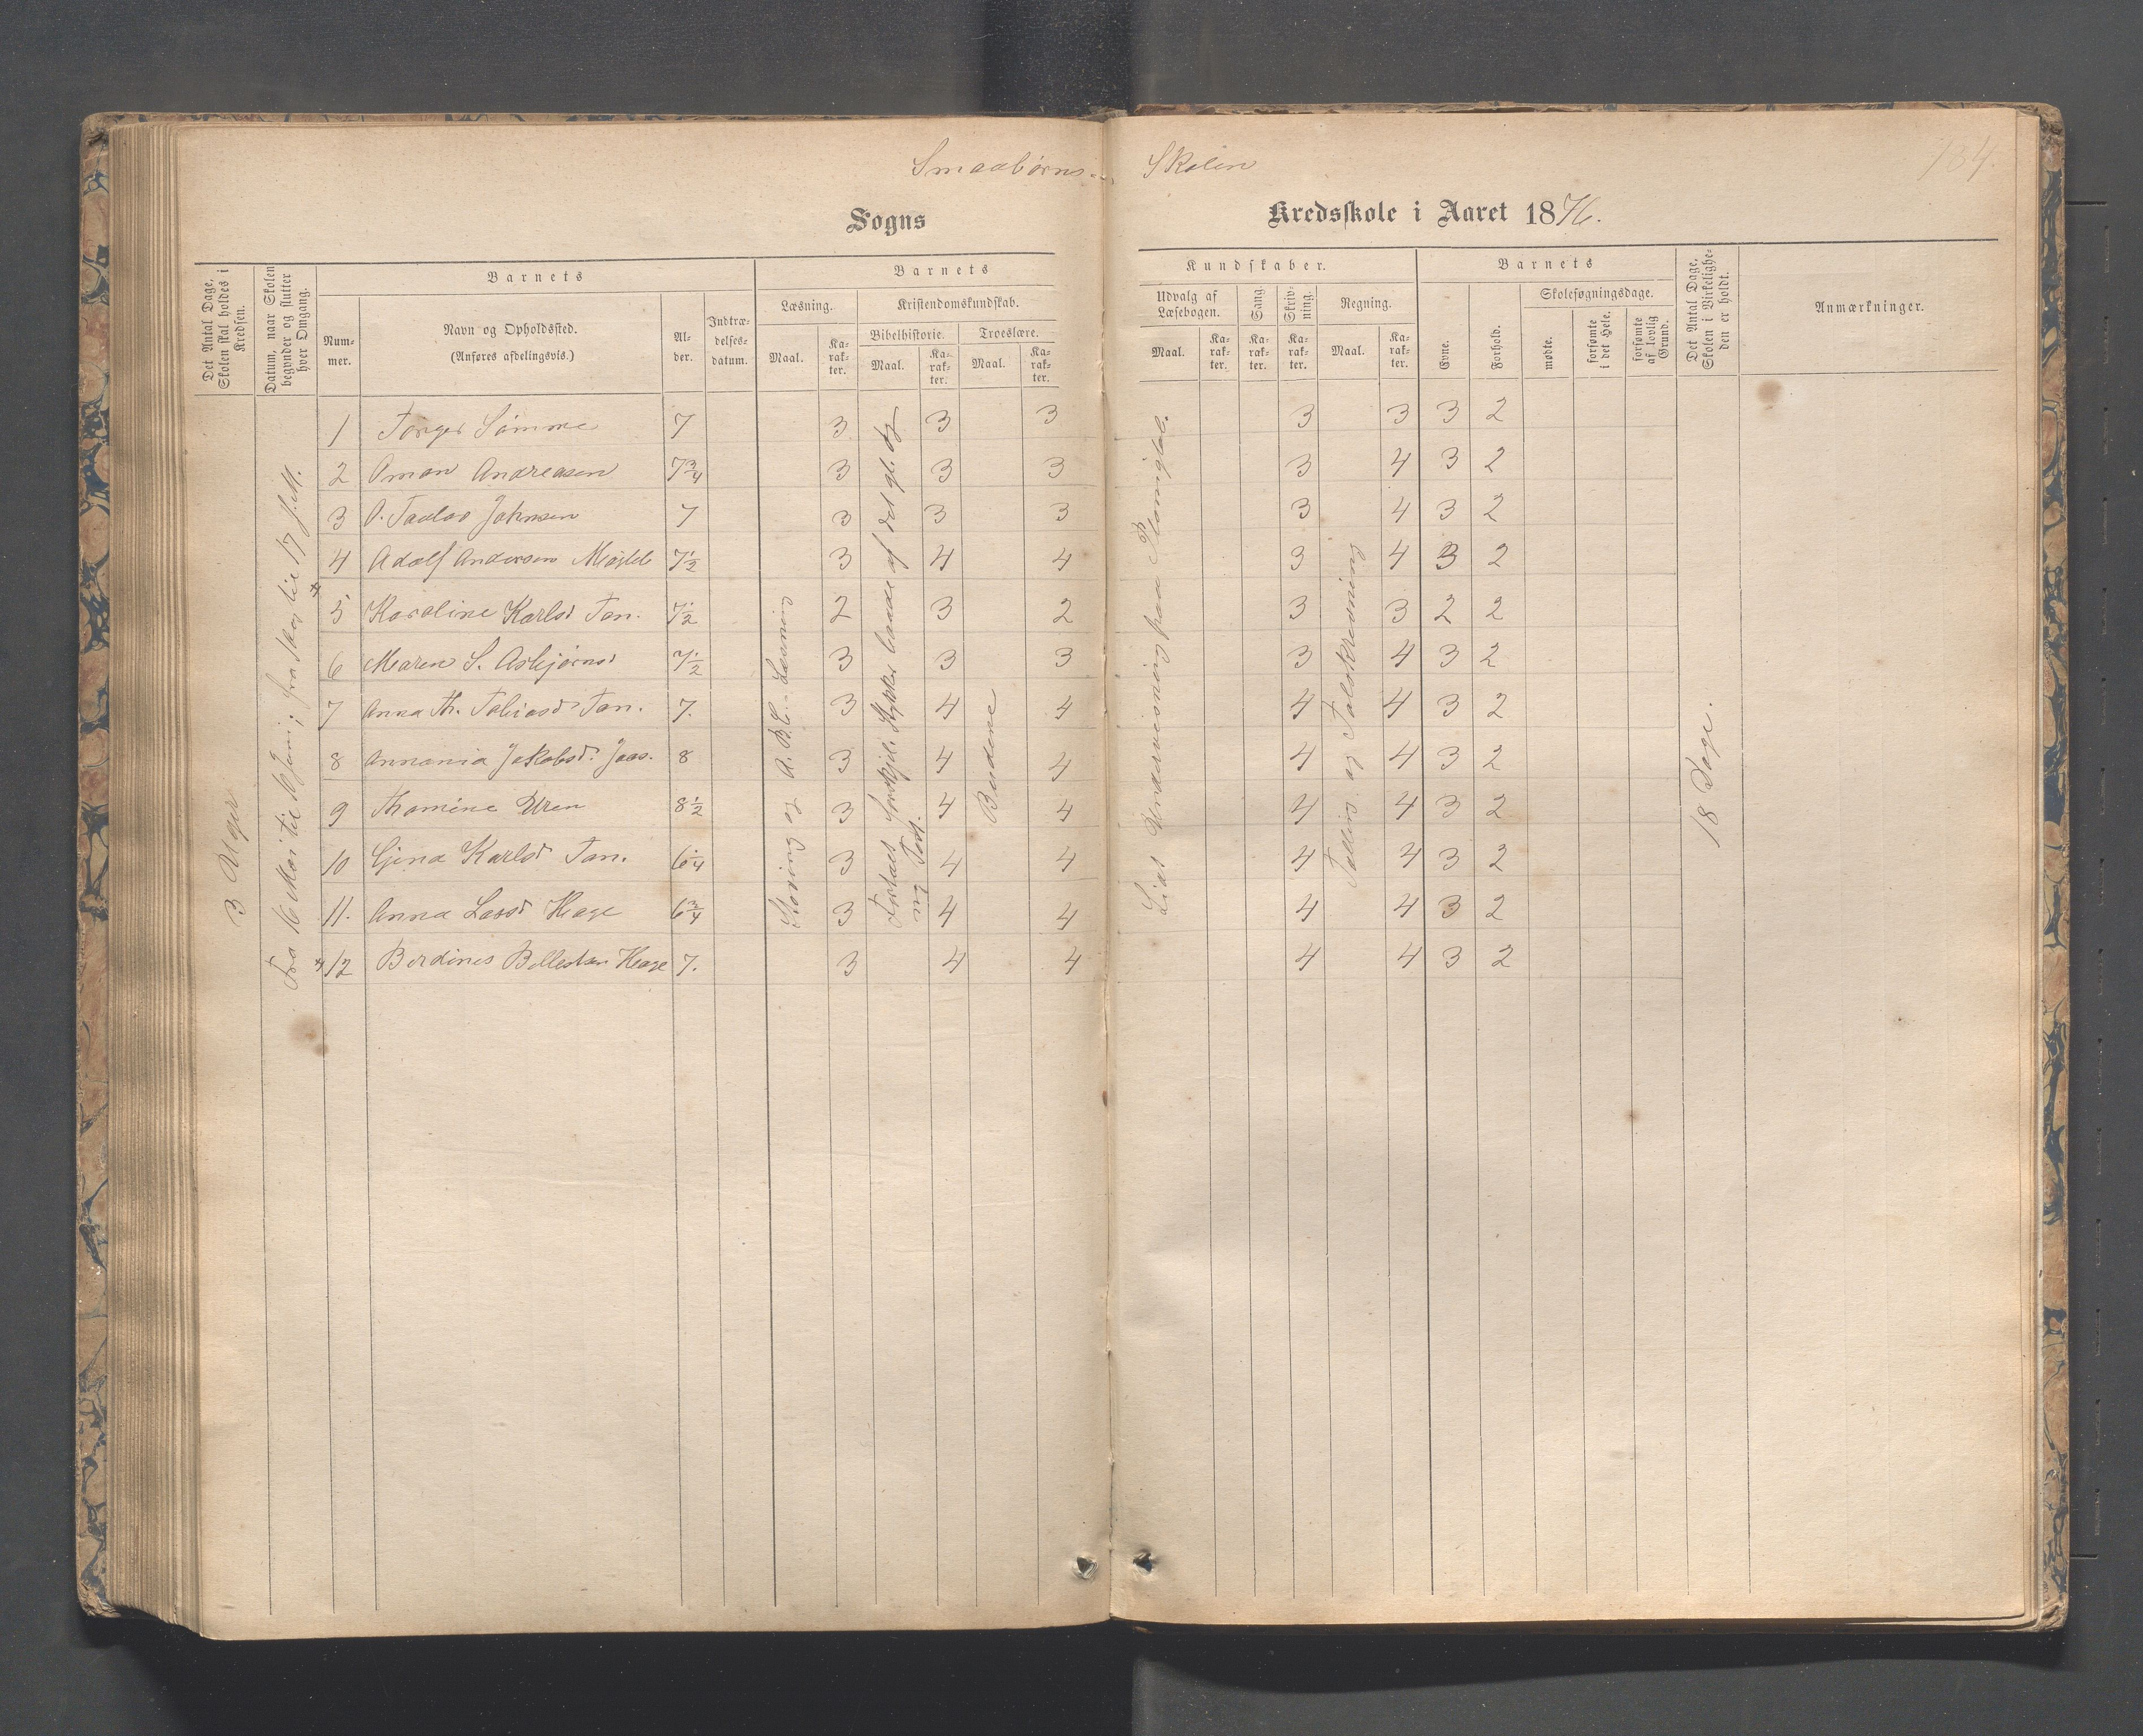 Smaabørns- Skolen
134.
Sogns Kredsskole i Aaret 1876.
Det Antal Dage, Skolen skal holdes i Kredsen.
Datum, naar Skolen begynder og slutter hver Omgang.
Barnets
Nummer.
Navn og Opholdssted.
(Anføres afdelingsvis.)
Alder.
Indtrædelsesdatum.
Barnets
Læsning.
Maal.
Karakter.
Kristendomskundskab.
Bibelhistorie.
Maal.
Karakter.
Troeslære.
Maal.
Karakter.
Kundskaber.
Udvalg af Læsebogen.
Maal.
Karakter.
Sang.
Karakter.
Skrivning.
Karakter.
Regning.
Maal.
Karakter.
Barnets
Evne.
Forhold.
Skolesøgningsdage.
mødte.
forsømte i det Hele.
forsømte af lovlig Grund.
Det Antal Dage, Skolen i Virkeligheden er holdt.
Anmærkninger.
3 Uger
Fra 16 Mai til 16 Juni; fra til 17 f.M.
1 Torger Sømme 7 3 3 3 3 3 3 2
2 Oman Andreasen 7 3/4 3 3 3 3 4 3 2
3 O. Johnsen 7 3 3 3 3 4 3 2
4 Adolf Andersen 7 1/2 3 4 4 3 4 3 2
5 Karoline Karlsd Tan. 7 1/2 2 3 2 3 3 2 2
6 Maren S. Asbjørnsd 7 1/2 3 3 3 3 4 3 2
7 Anna Th. Tobiasd Tan. 7. 3 4 4 4 4 3 2
8 Annania Jakobsd. Jaas. 8 3 4 4 4 4 3 2
9 Thomine Uren 8 1/2 3 4 4 4 4 3 2
10 Gjina Karlsd Tan. 6 1/4 3 4 4 4 4 3 2
11. Anna Larsd Hage 6 3/4 3 4 4 4 4 3 2
12 Berdines Hage 7. 3 4 4 4 4 3 2
Staving og A.B.C.-Læsning
Stykker baade af det gl. og ny Test.
Budene
Lidt Undervisning paa
Tælling og Talskrivning
18 Dage.